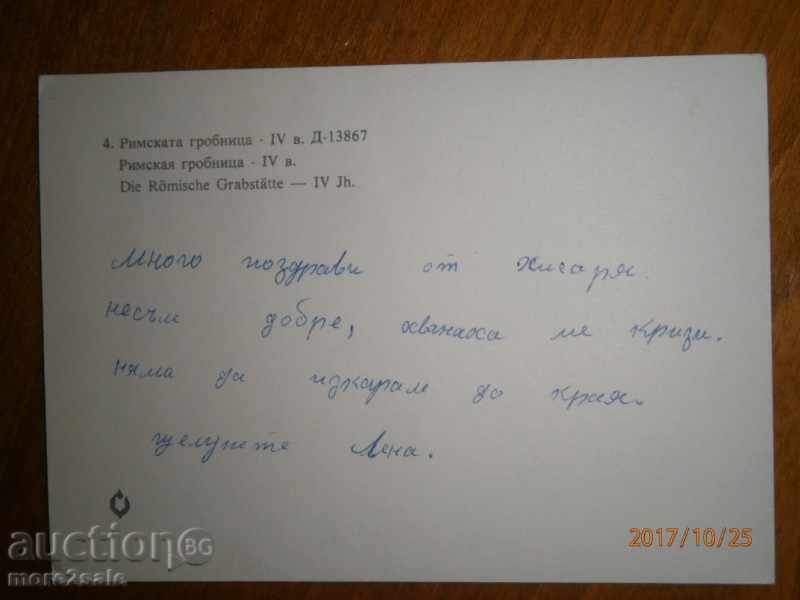 4. Римската гробница - IV в. Д-13867
Римская гробница - IV в.
Die Römische Grabstätte — IV Jh.
Много поздрави от Хисаря.
несъм добре, хванаха ме кризи.
няма да изкарам до края.
целунете Ана.
auctionBG
more2sale
2017/10/25